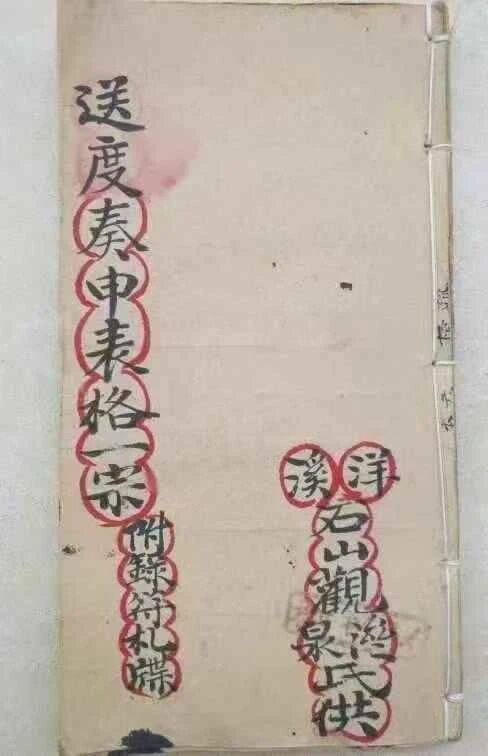 送度奏申表格一宗
附錄符札牒
洋溪
石山觀
泉
氏供